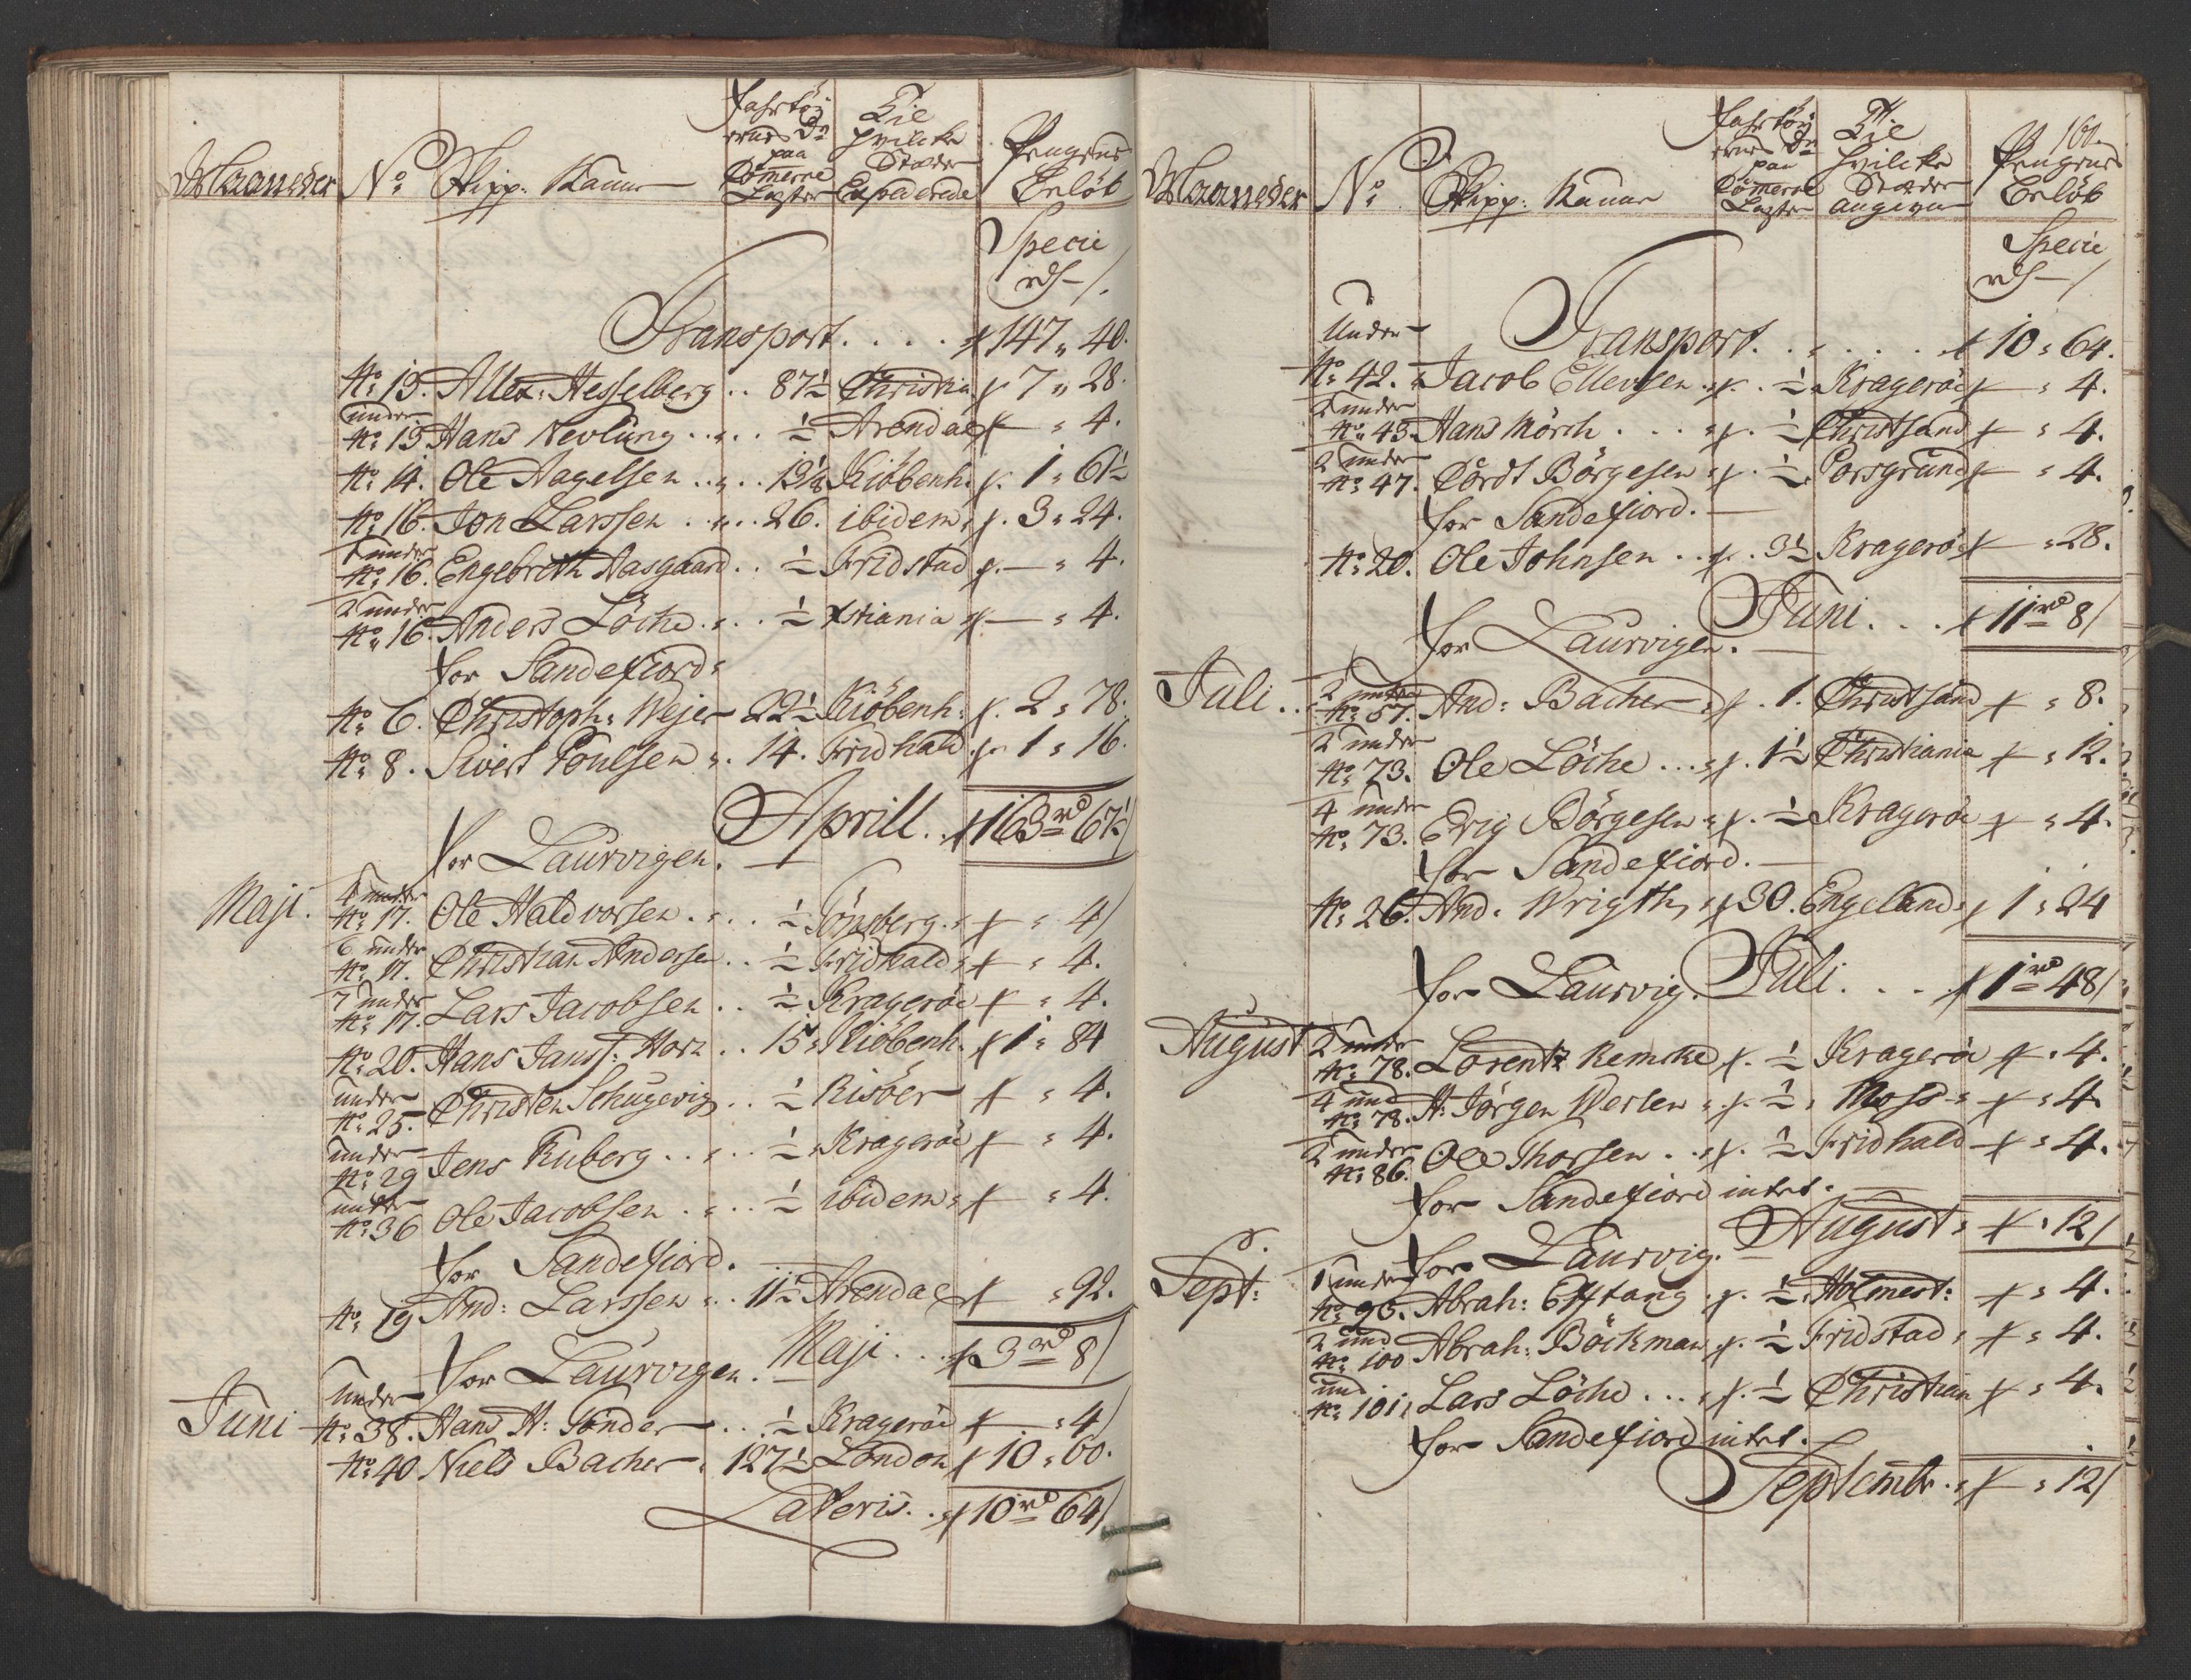 Maaneder No: Skipp: Naune Fahrtöj ernes Dr: paa Commerce Læster Til hvilcke Stæder Expederede Pengenes Erlöb
Specie
rd - /
Transport . . . . 147 " 40.
No: 13. Allex: Hesselberg . . 87½ Christia 7 " 28.
under No: 13 Hans Nevlung . . . ½ Arendal - " 4.
No: 14. Ole Nagelsen . . . 13½ Kiöbenh. 1 " 61½
No: 16. Jon Larssen . . . 26. ibidem 3 " 24.
1 under No: 16. Engebreth Aasgaard . . ½ Fridstad - " 4.
2 under No: 16. Anders Löche . . . ½ Xstiania - " 4.
for Sandefiord:
No: 6. Christoph: Wejer 22½ Kiöbenh: 2 " 78.
No: 8. Sivert Poulsen . 14. Fridhald 1 " 16.
Aprill. . 163 rd 67½
for Laurvigen.
Maji. 4 under No: 17. Ole Haldvorsen . . . ½ Tönsberg. " 4
6 under No: 17. Christian Andersen . . ½ Fridhald " 4.
7 under No: 17. Lars Jacobsen . . ½ Krageröe " 4.
No: 20. Hans Jansf: Horn . . 15 Kiöbenh. 1 " 84
under No: 25. Christen Schugevig . . ½ Risöer " 4.
under No: 29 Jens Ruberg . . . ½ Krageröe " 4.
under No: 36 Ole Jacobsen . . . ½ ibidem " 4.
for Sandefiord.
No: 19 And: Larssen . . 11½ Arendal " 92.
Maji . . 3 rd 8
for Laurvigen.
Juni under No: 38. Hans H: Tönder . . ½ Krageröe " 4
No: 40 Niels Bacher . 127½ London 10 " 60.
Lateris . . 10 rd 64
161.
Maaneder No: Skipp: Naune Fahrtöj ernes Dr: paa Commerce Læster Til hvilcke Stæder angivne Pengenes Erlöb
Specie
rd - /
Transport. . . . . 10 " 64.
under No: 42. Jacob Ellevsen . ½ Krageröe " 4.
2 under No: 43. Hans Mörch . . . ½ Christsand " 4.
2 under No: 47. Cordt Börgesen ½ Porsgrund " 4.
for Sandefiord.
No: 20. Ole Johnsen . . 3½ Krageröe " 28.
Juni . . . 11 rd 8
for Laurvigen.
Juli . . 2 under No: 57. And: Bacher . 1. Christsand " 8.
2 under No: 73. Ole Löche . . . 1½ Christiania " 12.
4 under No: 73. Erig Börgesen . ½ Krageröe " 4.
for Sandefiord.
No: 26. And: Wrigth, 30. Engeland 1 " 24
Juli . . . 1 rd 48
for Laurvig.
August 2 under No: 78. Lorentz Remcke ½ Krageröe " 4.
4 und No: 78. H: Jörgen Werlen ½ Moss " 4
2 under No: 86. Ole Thorsen . . ½ Fridhald " 4.
for Sandefiord intet.
August " 12
for Laurvig.
Sept: 1 under No: 95. Abrah: Efftang . ½ Holmest: " 4.
2 und No: 100 Abrah: Böckman . ½ Fridstad " 4.
und No: 101 Lars Löche . . . ½ Christian " 4.
for Sandefiord intet.
Septembr. " 12